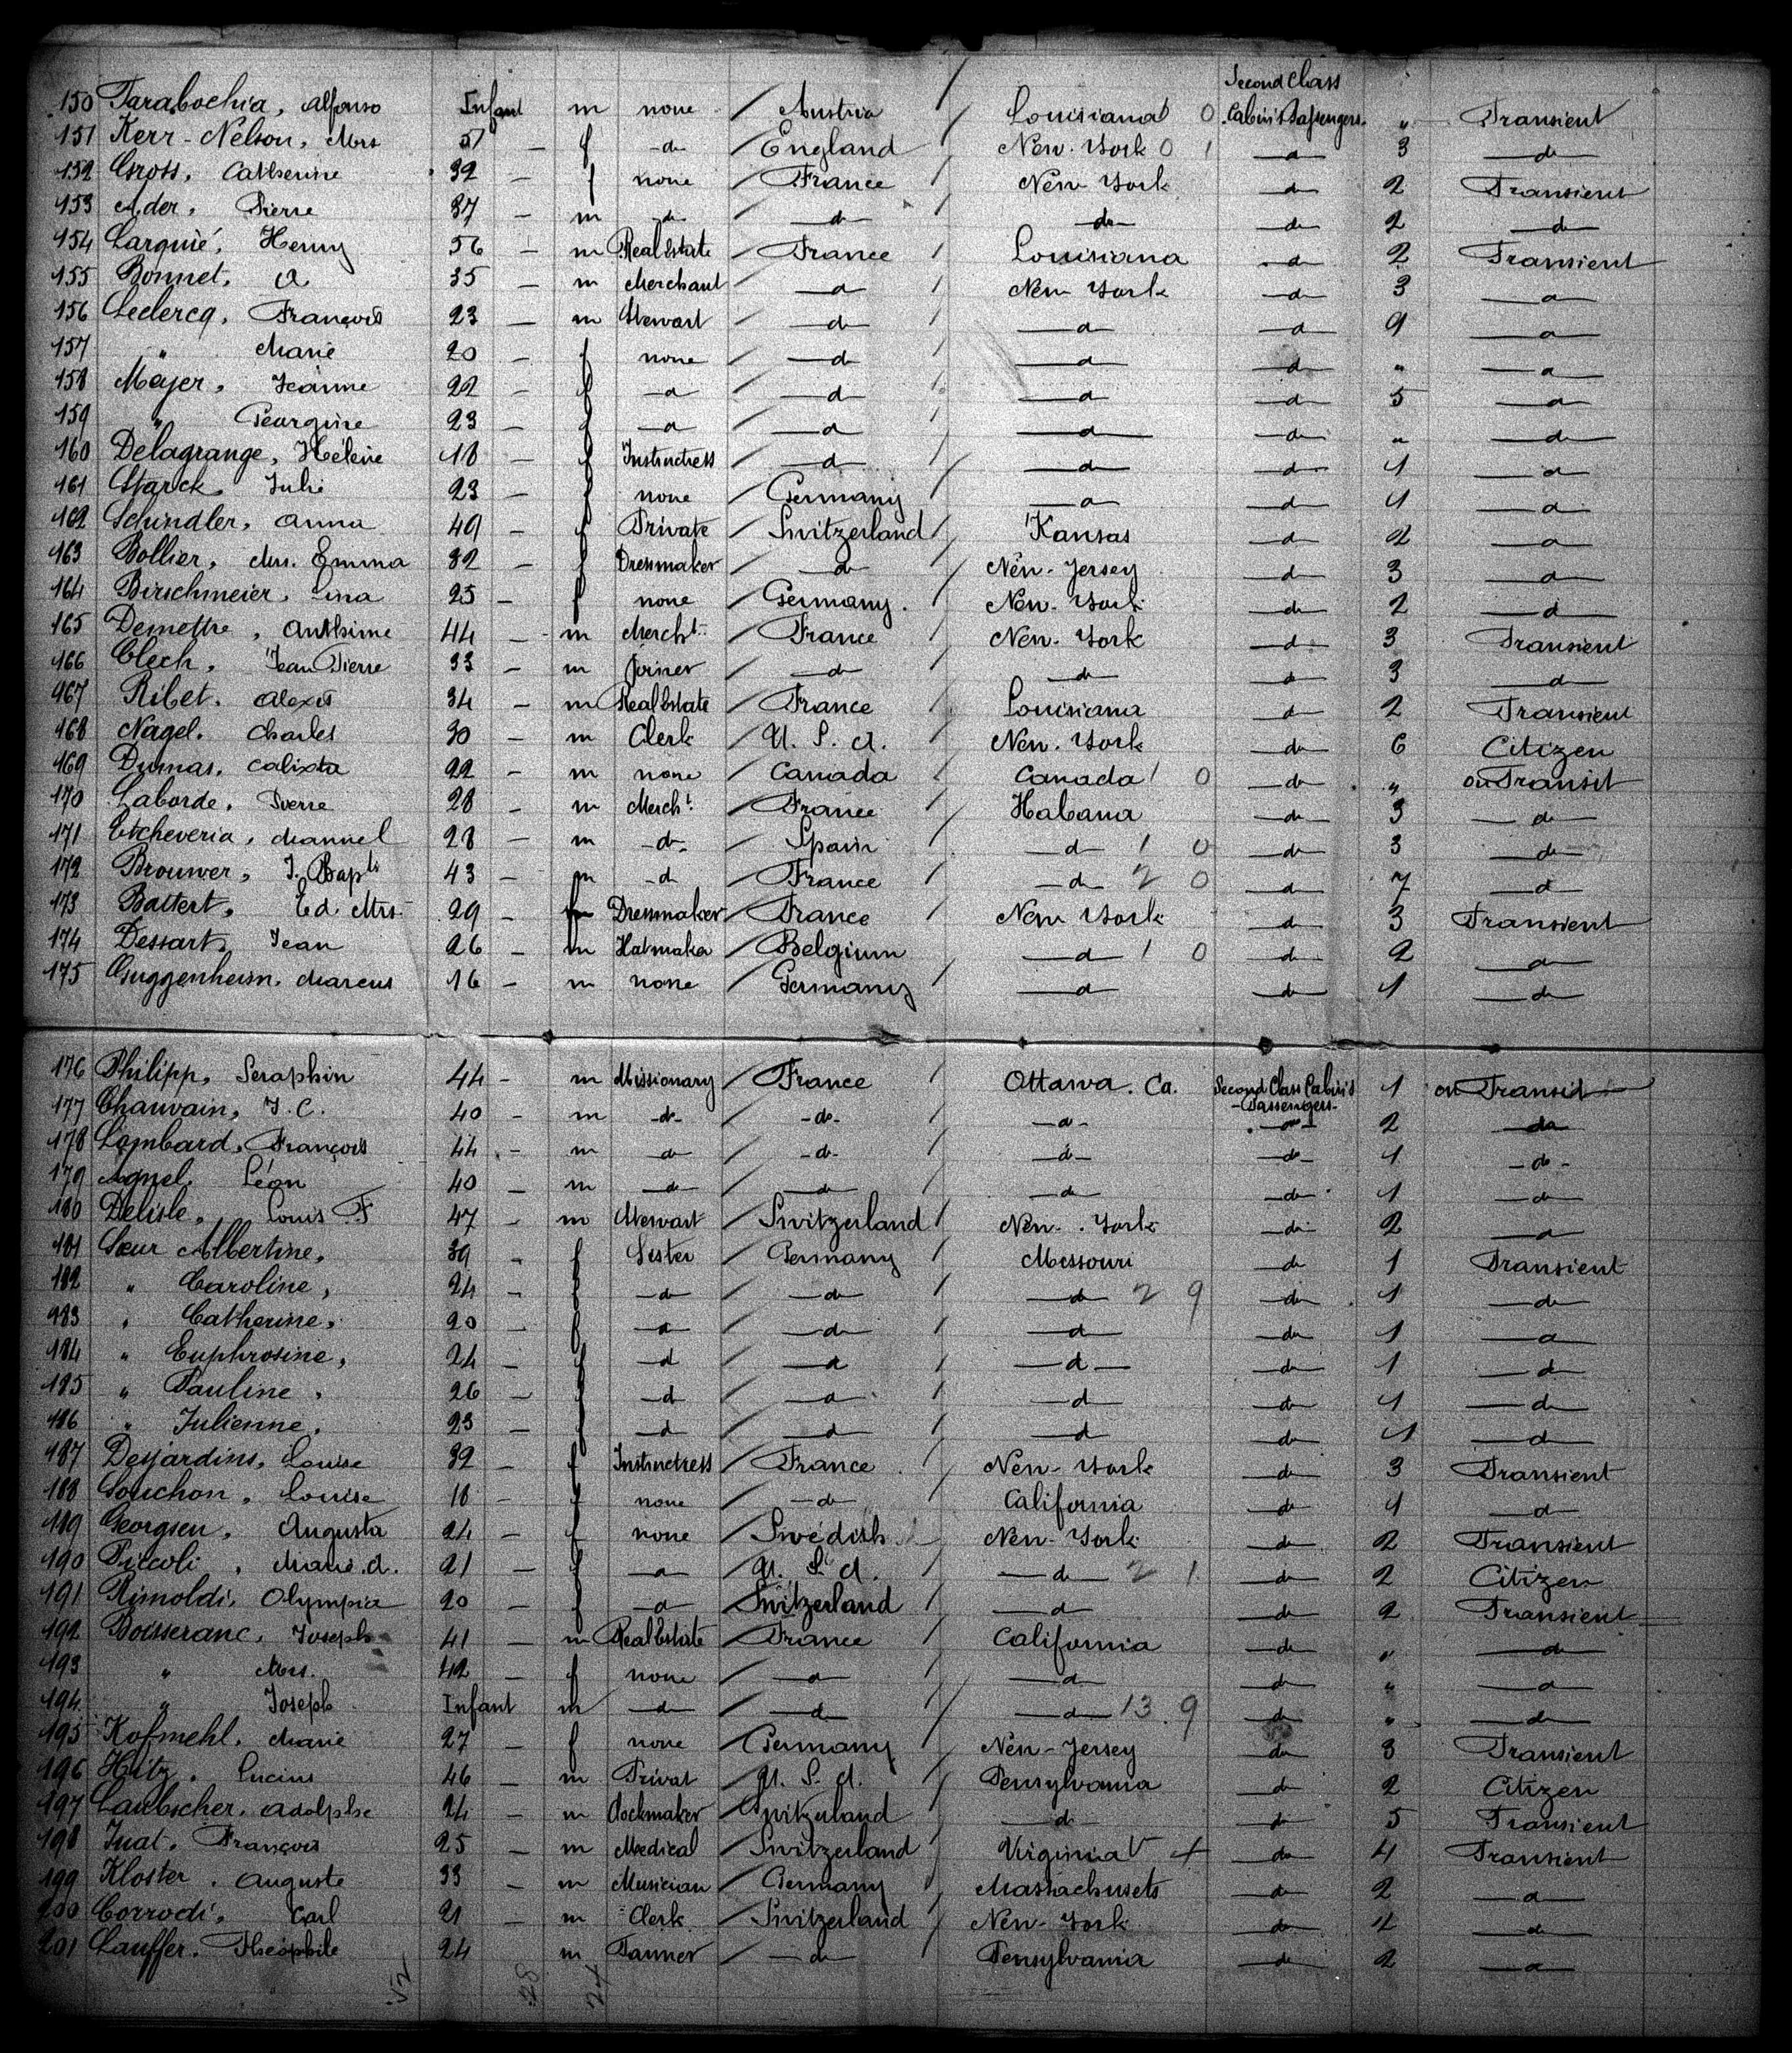 Second Class
150 Tarabochia, Alfonso Infant m none Austria Louisiana 0 Cabin's Passengers " Transient
151 Kerr-Nelson, Mrs 51 - f -do- England New-York 0 1 -d- 3 -do-
152 Gross, Catherine 32 - f none France New York -d- 2 Transient
153 Ader, Pierre 37 - m -d- -d- -do- -do- 2 -d-
154 Larquié, Henry 56 - m Real Estate France Louisiana -d- 2 Transient
155 Bonnet, A 35 - m Merchant -d- New York -do- 3 -d-
156 Leclercq, François 23 - m Stewart -d- -d- -d- 9 -d-
157 " Marie 20 - f none -d- -d- -d- " -d-
158 Meyer, Jeanne 22 - f -d- -d- -d- -d- 5 -d-
159 " Georgine 23 - f -d- -d- -d- -do- " -do-
160 Delagrange, Hélène 18 - f Instructress -d- -do- -d- 1 -d-
161 Starck, Julie 23 - f none Germany -d- -d- 1 -d-
162 Schindler, Anna 49 - f Private Switzerland Kansas -d- 2 -d-
163 Bollier, Mrs. Emma 32 - f Dressmaker -d- New-Jersey -d- 3 -d-
164 Birschmeier, Lina 25 - f none Germany. New-York -do- 2 -d-
165 Demettre, Anthime 44 - m Mercht. France New-York -d- 3 Transient
166 Clech, Jean Pierre 33 - m Joiner -d- -do- -d- 3 -d-
167 Ribet, Alexis 34 - m Real Estate France Louisiana -d- 2 Transient
168 Nagel, Charles 30 - m Clerk U. S. A. New-York -do- 6 Citizen
169 Dumas, Calixta 22 - m none Canada Canada 0 -do- " on Transit
170 Laborde, Pierre 28 - m Mercht. France Habana -do- 3 -do-
171 Etcheveria, Manuel 28 - m -do- Spain -d- 1 0 -do- 3 -do-
172 Brouwer, J. Bapt. 43 - m -d- France -do- 2 0 -d- 7 -d-
173 Battert, Ed. Mrs. 29 - f Dressmaker France New York -d- 3 Transient
174 Dessart, Jean 26 - m Hatmaker Belgium -d- 1 0 -d- 2 -d-
175 Guggenheim, Marcus 16 - m none Germany -d- -do- 1 -do-
176 Philipp, Seraphin 44 - m Missionary France Ottawa. Ca. Second Class Cabin's 1 on Transit
-Passengers-
177 Chauvain, J. C. 40 - m -do- -do- -d- -do- 2 -do-
178 Lombard, François 44 - m -d- -d- -d- -do- 1 -do-
179 Agnel, Léon 40 - m -do- -do- -do- -do- 1 -do-
180 Delisle, Louis F 47 - m Stewart Switzerland New-York -do- 2 -d-
181 Sœur Albertine, 39 - f Sister Germany Messouri -do- 1 Transient
182 " Caroline, 24 - f -do- -do- -do- 2 9 -do- 1 -do-
183 " Catherine, 20 - f -d- -do- -d- -do- 1 -d-
184 " Euphrosine, 24 - f -d -d -d- -do- 1 -d-
185 " Pauline, 26 - f -d -d -d -do- 1 -do-
186 " Julienne, 23 - f -d -d -d -do- 1 -d-
187 Desjardins, Louise 32 - f Instructress France New-York -do- 3 Transient
188 Souchon, Louise 18 - f none -do- California -do- 1 -d-
189 Georgsen, Augusta 24 - f none Swedish New-York -do- 2 Transient
190 Piccoli, Marie d. 21 - f -d- U. S. A. -do- 2 1 -do- 2 Citizen
191 Rimoldi, Olympia 20 - f -d- Switzerland -d- -do- 2 Transient
192 Boisseranc, Joseph 41 - m Real Estate France California -do- " -do-
193 " Mrs. 42 - f none -d- -d- -do- " -d-
194 " Joseph Infant m -d- -do- -do- 13 9 -do- " -do-
195 Kofmehl, Marie 27 - f none Germany New-Jersey -do- 3 Transient
196 Hitz, Lucius 46 - m Privat U. S. A. Pensylvania -do- 2 Citizen
197 Laubscher, Adolphe 24 - m Clockmaker Switzerland -d- -do- 5 Transient
198 Juat, François 25 - m Medical Switzerland Virginia -do- 4 Transient
199 Kloster, Auguste 33 - m Musician Germany Massachusets -do- 2 -d-
200 Corrodi, Carl 21 - m Clerk Switzerland New-York -do- 4 -d-
201 Lauffer, Théophile 24 - m Tanner -do- Pensylvania -do- 2 -d-
52 28 24